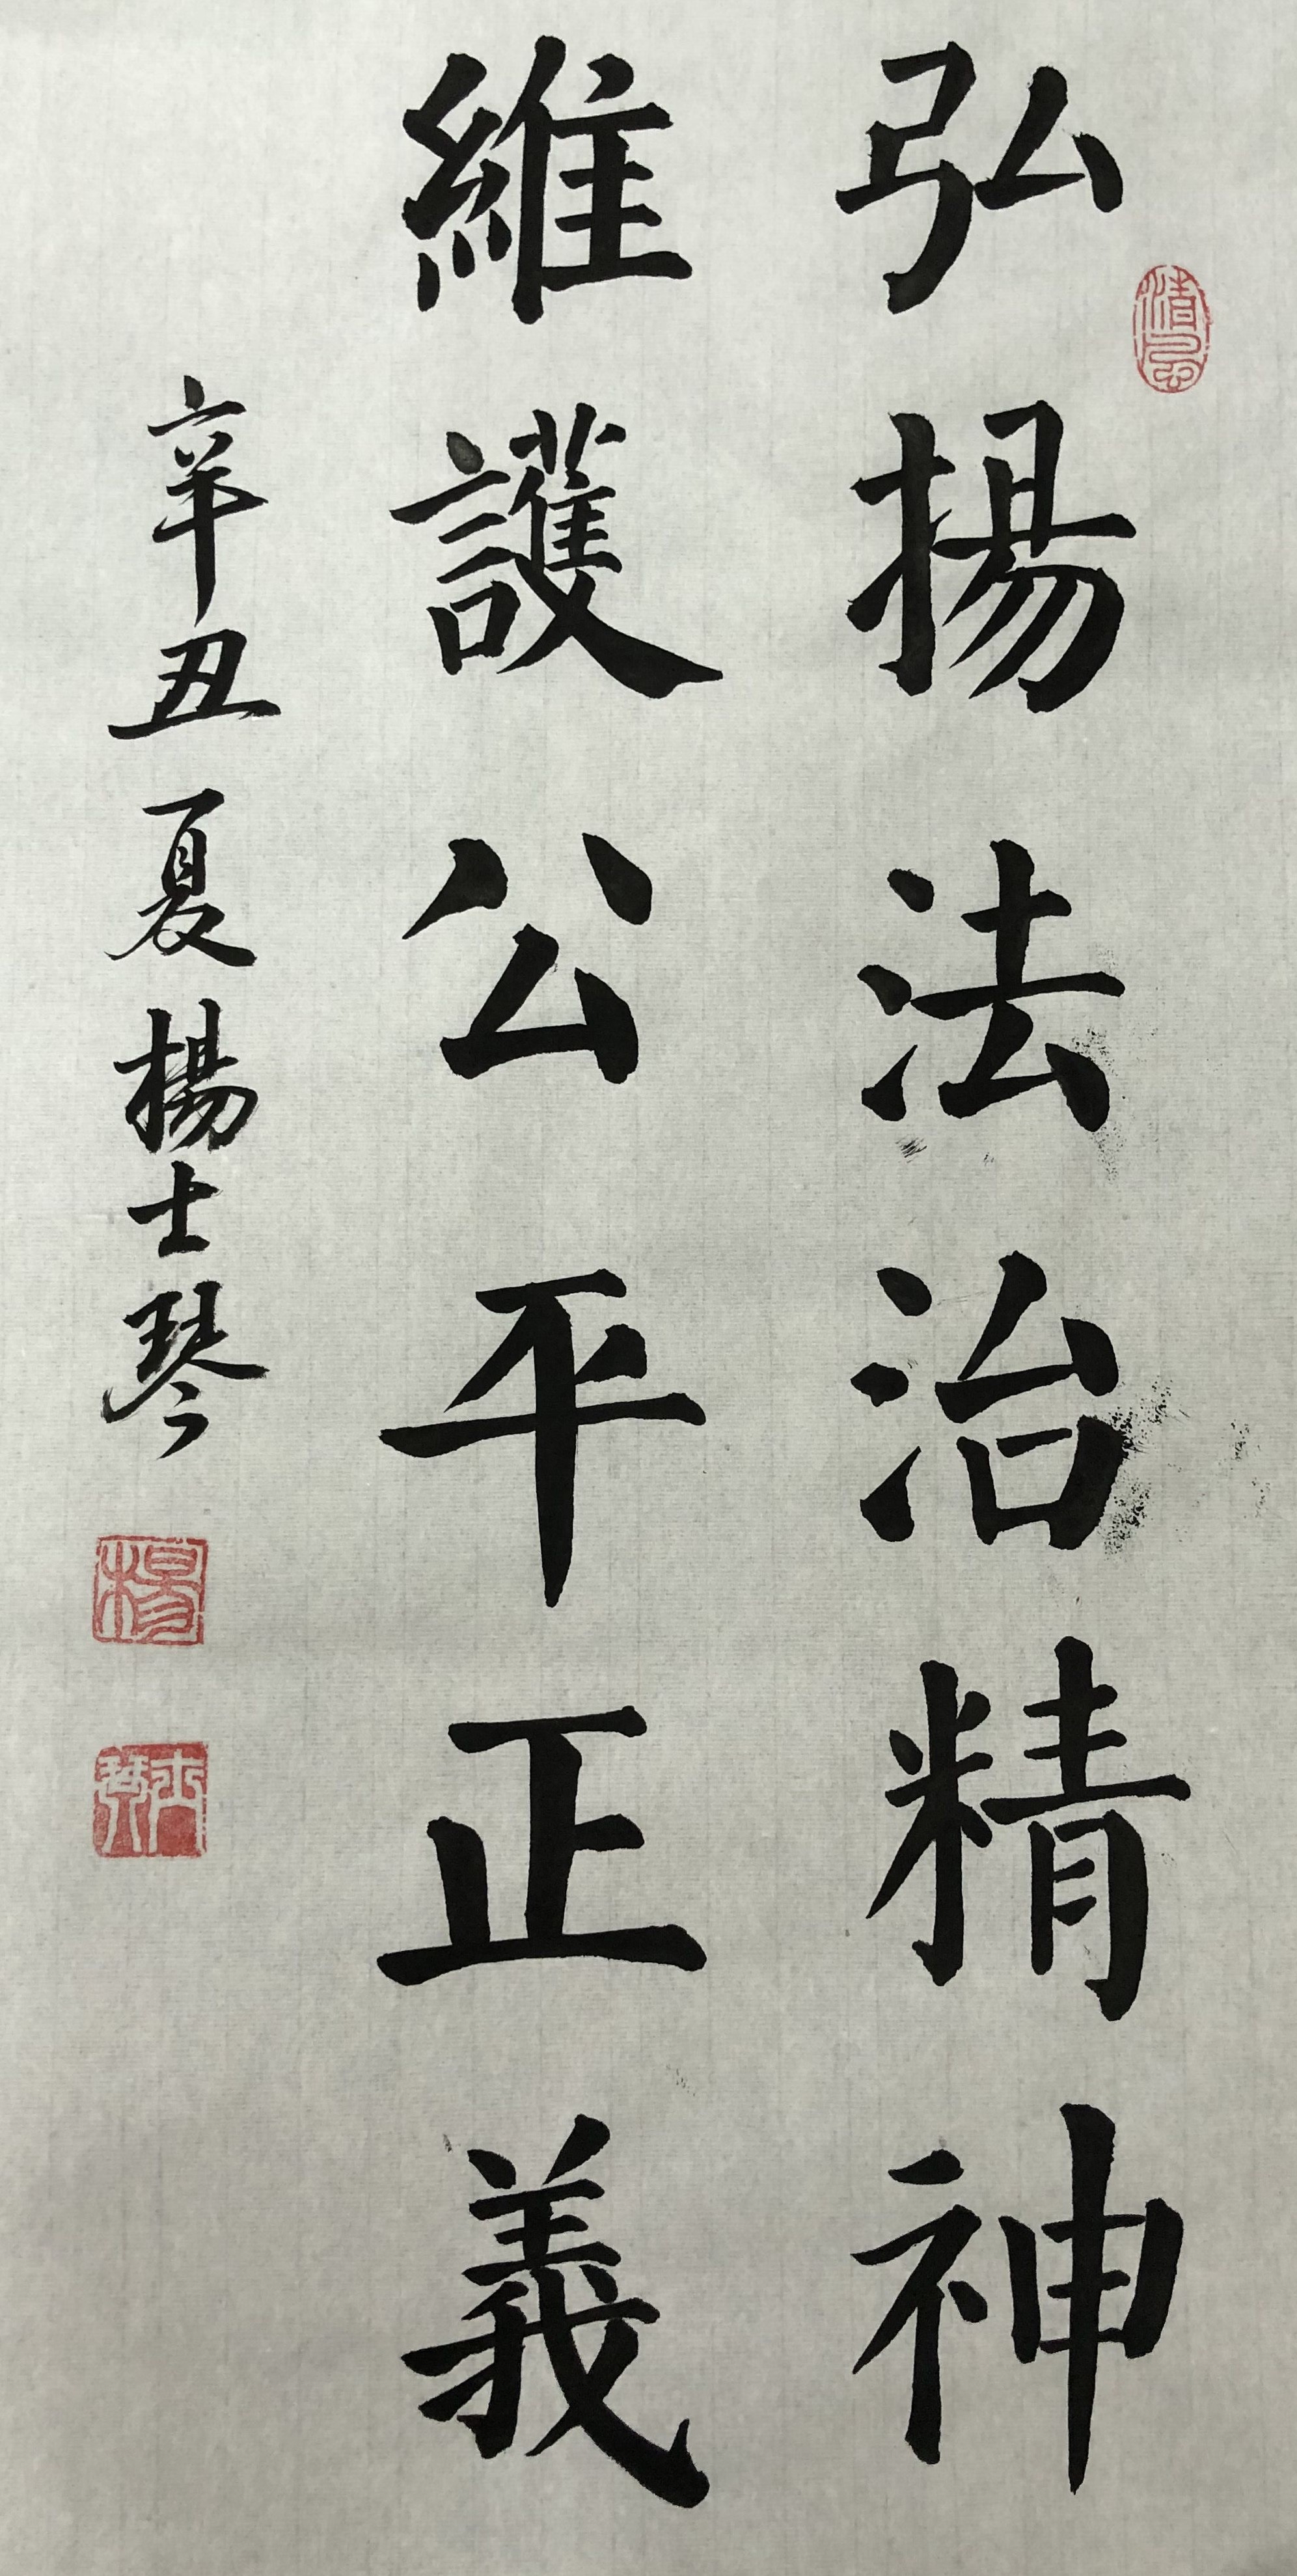 弘揚法治精神
維護公平正義
辛丑夏楊士琴
楊